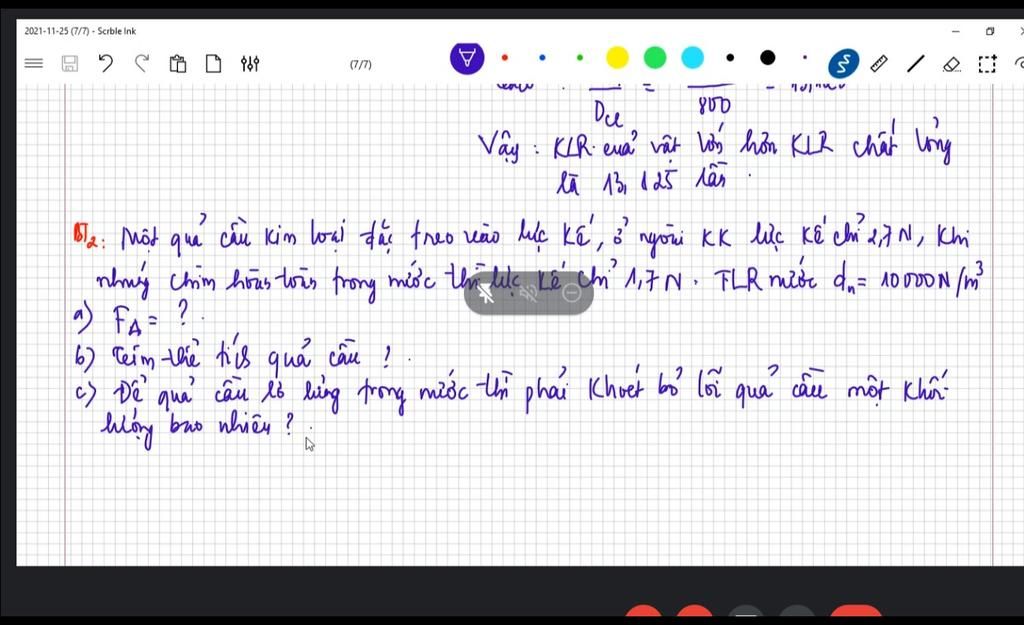 2021-11-25 (7/7) - Scrble Ink
(7/7)
D cl 800
Vậy : KLR của vật lớn hơn KLR chất lỏng
là 13,125 lần .
BT2: Một quả cầu kim loại đặc treo vào lực kế, ở ngoài KK lực kế chỉ 2,7N, khi
nhúng chìm hoàn toàn trong nước thì lực kế chỉ 1,7N. TLR nước dn= 10000N/m³
a) FA = ? .
b) Tìm thể tích quả cầu ? .
c) Để quả cầu lơ lửng trong nước thì phải khoét bỏ lõi quả cầu một khối
lượng bao nhiêu ? .